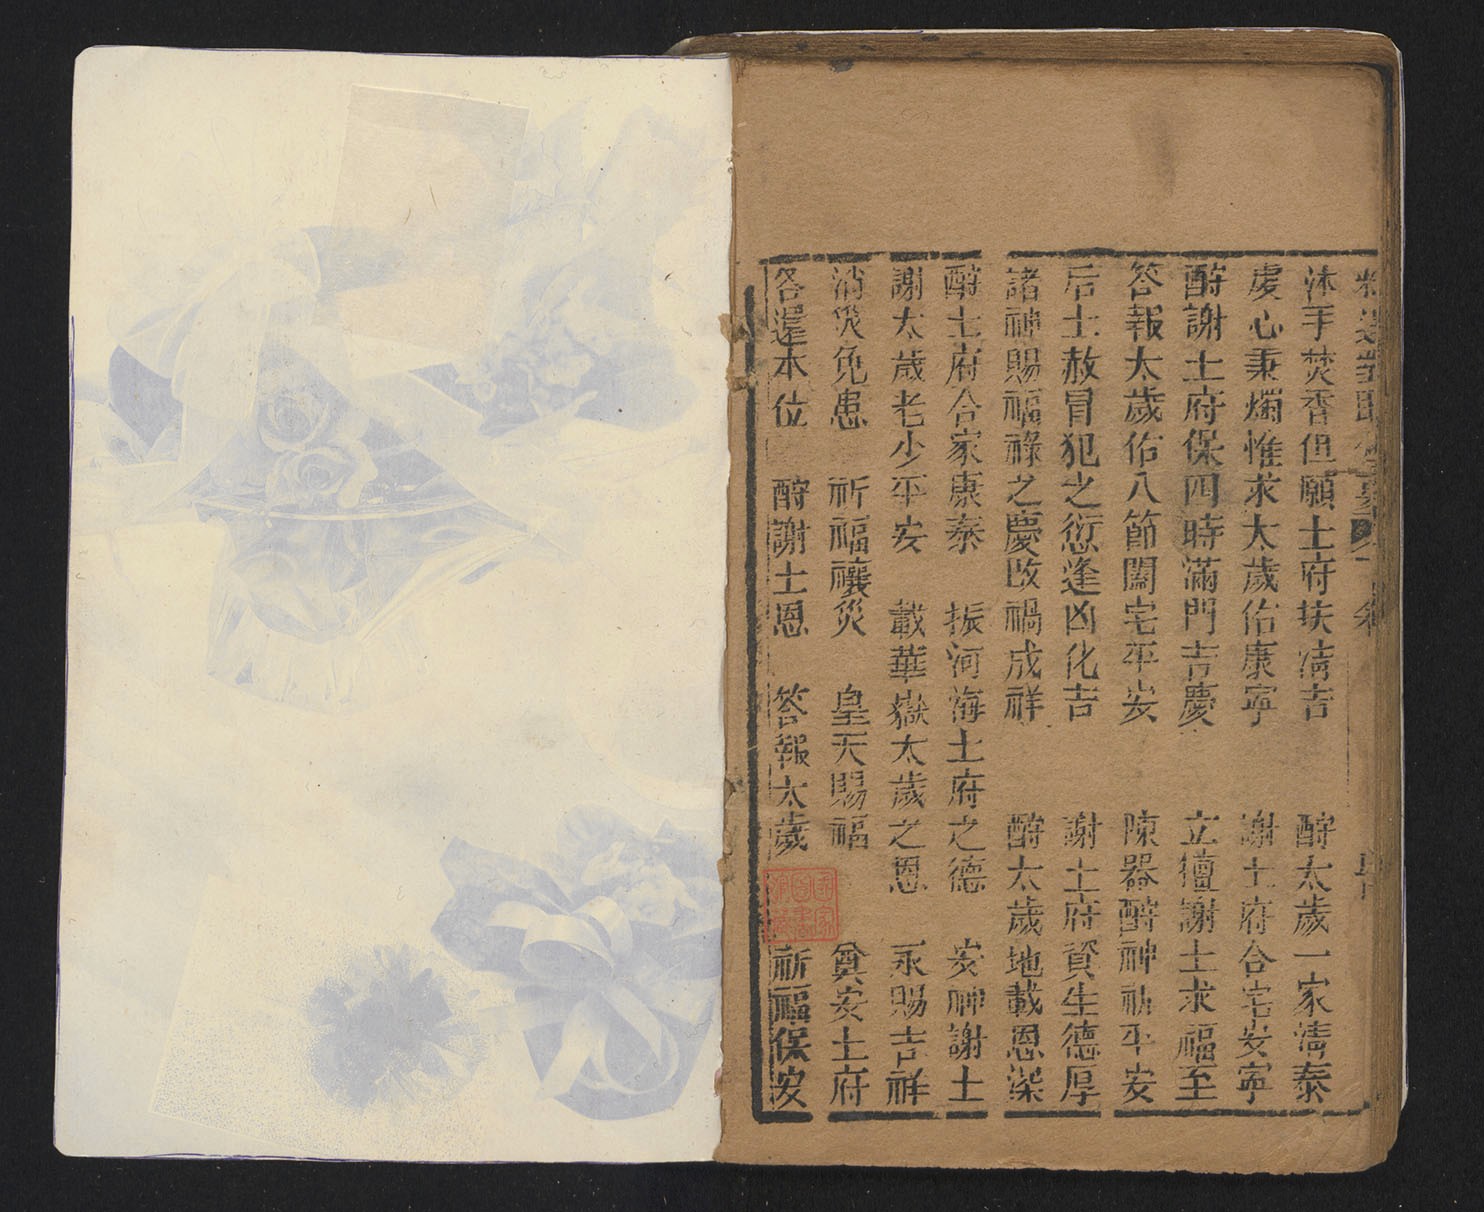 沐手焚香但願土府扶清吉　酧太歲一家清泰
虔心秉燭惟求太歲佑康寧　謝土府合宅安寧
酧謝土府保四時滿門吉慶　立壇謝土求福至
答報太歲佑八節闔宅平安　陳器酧神祈平安
后土赦冒犯之愆逢凶化吉　謝土府資生德厚
諸神賜福祿之慶改禍成祥　酧太歲地載恩深
酧土府合家康泰　振河海土府之德　安神謝土
謝太歲老少平安　載華嶽太歲之恩　永賜吉祥
消災免患　祈福禳災　皇天賜福　奠安土府
各還本位　酧謝土恩　答報太歲　祈福保安
國家圖書館藏